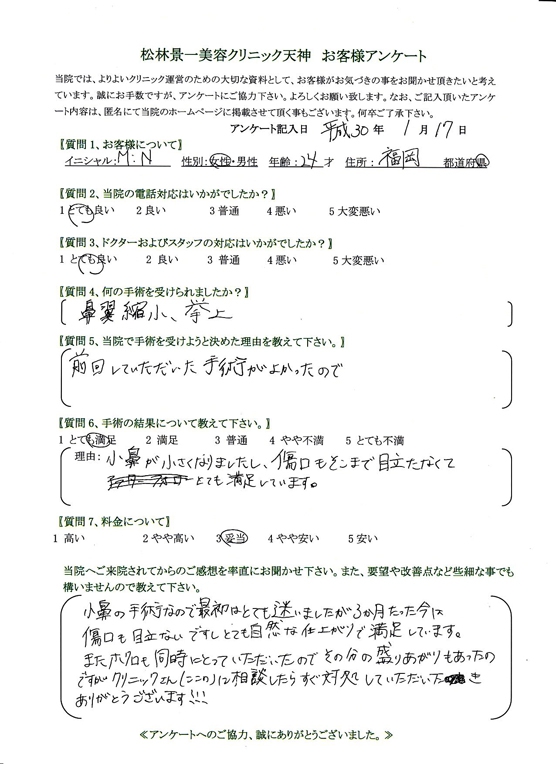 松林景一美容クリニック天神　お客様アンケート
当院では、よりよいクリニック運営のための大切な資料として、お客様がお気づきの事をお聞かせ頂きたいと考え
ています。誠にお手数ですが、アンケートにご協力下さい。よろしくお願い致します。なお、ご記入頂いたアンケ
ート内容は、匿名にて当院のホームページに掲載させて頂く事もございます。何卒ご了承下さい。
アンケート記入日　平成30年　1月17日
〖質問1、お客様について〗
イニシャル：M.N　性別：女性・男性　年齢：24才　住所：福岡　都道府県
〖質問2、当院の電話対応はいかがでしたか？〗
1 とても良い　2 良い　3 普通　4 悪い　5 大変悪い
〖質問3、ドクターおよびスタッフの対応はいかがでしたか？〗
1 とても良い　2 良い　3 普通　4 悪い　5 大変悪い
〖質問4、何の手術を受けられましたか？〗
鼻翼縮小、挙上
〖質問5、当院で手術を受けようと決めた理由を教えて下さい。〗
前回していただいた手術がよかったので
〖質問6、手術の結果について教えて下さい。〗
1 とても満足　2 満足　3 普通　4 やや不満　5 とても不満
理由：小鼻が小さくなりましたし、傷口もそこまで目立たなくて
とても満足しています。
〖質問7、料金について〗
1 高い　2 やや高い　3 妥当　4 やや安い　5 安い
当院へご来院されてからのご感想を率直にお聞かせ下さい。また、要望や改善点など些細な事でも
構いませんので教えて下さい。
小鼻の手術なので最初はとても迷いましたが3か月たった今は
傷口も目立ないですしとても自然な仕上がりで満足しています。
またホクロも同時にとっていただいたのでその分の盛りあがりもあったの
ですがクリニックさん(ここの)に相談したらすぐ対処していただいた
ありがとうございます!!!
≪アンケートへのご協力、誠にありがとうございました。≫